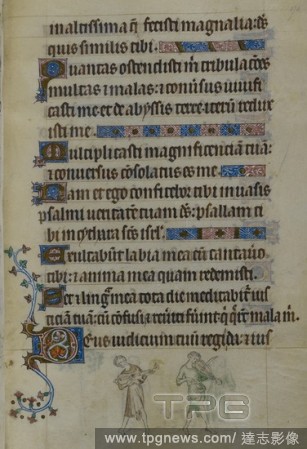 maltissima q̄ fecisti magnalia: ds̄
quis similis tibi.
Quantas ostendisti m̄ tribulac̄oēs
multas ⁊ malas: ⁊ conūsus uiuifi
casti me et de abyssis terre iterū redux
isti me.
Multiplicasti magnificēciā tuā:
⁊ conūersus cōsolatus es me.
Nam et ego confitebor tibi in uasis
psalmi ueritatē tuam ds̄: psallam ti
bi in cythara sc̄s isrl̄.
Exultabūt labia mea cū cantauero
tibi: ⁊ anima mea quam redemisti.
Set ⁊ lingua mea tota die meditabit̄ ius
ticiam tuā: cū cōfusi ⁊ reueriti fuerīt q̄ q̄rūt mala m̄.
Deus iudicium tuū regi da: ⁊ ius
TPG
www.tpgnews.com / 達志影像